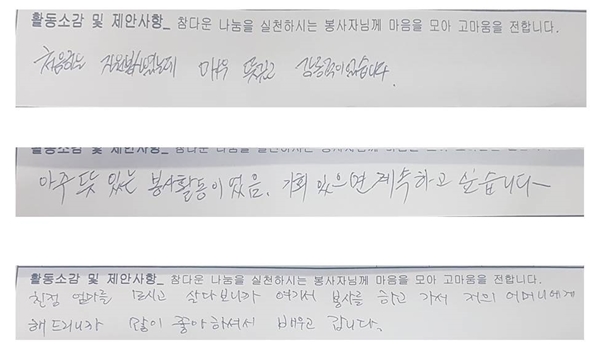 활동소감 및 제안사항_ 참다운 나눔을 실천하시는 봉사자님께 마음을 모아 고마움을 전합니다.
처음하는 자원봉사였는데 매우 뜻깊고 감동적이었습니다.
활동소감 및 제안사항_ 참다운 나눔을 실천하시는 봉사자님께 마음을 모아 고마움을 전합니다.
아주 뜻 있는 봉사활동이었음. 기회 있으면 계속하고 싶습니다~
활동소감 및 제안사항_ 참다운 나눔을 실천하시는 봉사자님께 마음을 모아 고마움을 전합니다.
친정 엄마를 모시고 살다보니까 여기서 봉사를 하고 가서 저의 어머니에게
해드리니까 많이 좋아하셔서 배우고 갑니다.